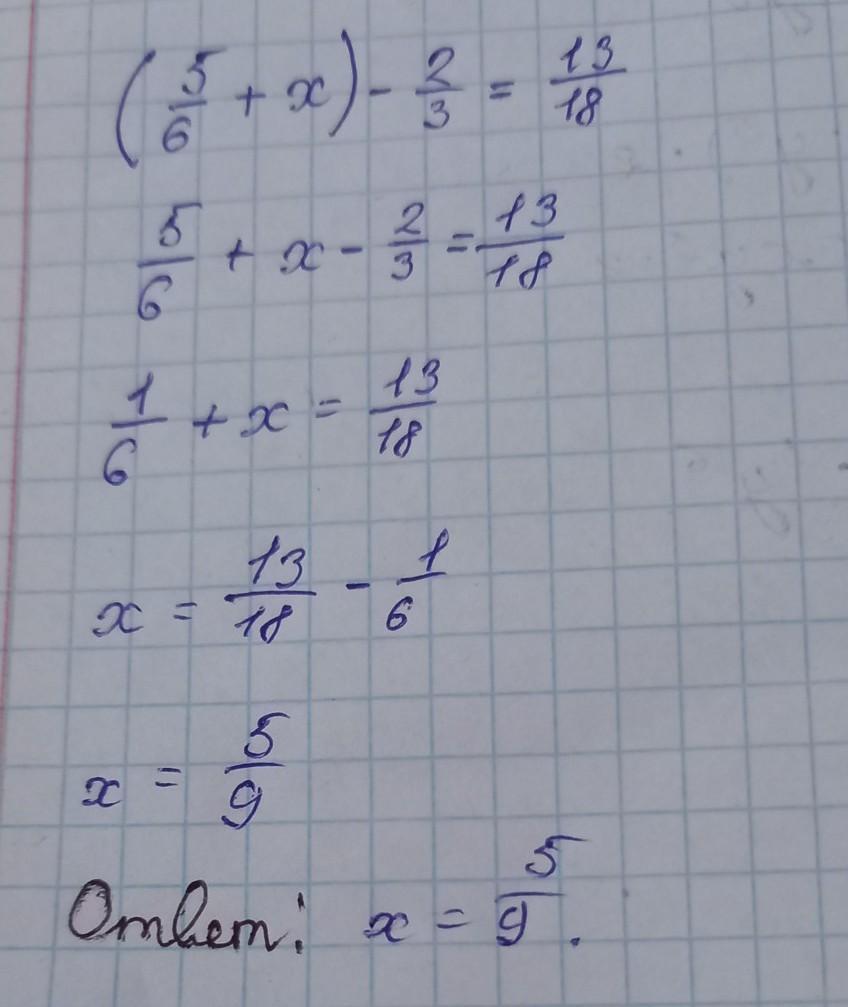 (5/6 + x) - 2/3 = 13/18
5/6 + x - 2/3 = 13/18
1/6 + x = 13/18
x = 13/18 - 1/6
x = 5/9
Ответ: x = 5/9.